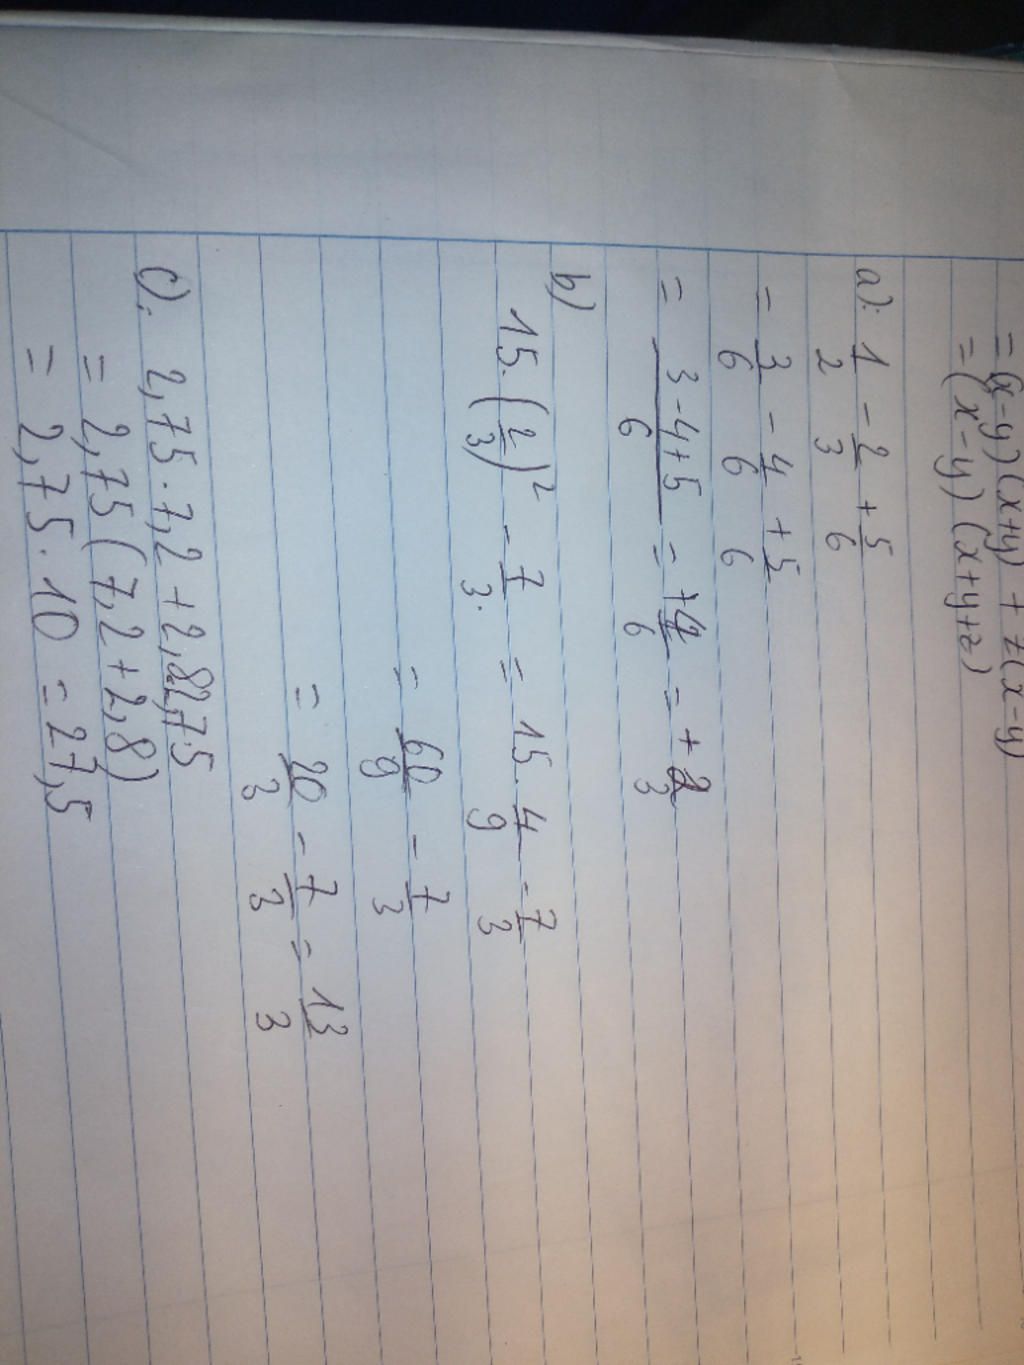 = (x-y)(x+y) + z(x-y)
= (x-y)(x+y+z)
a): 1/2 - 2/3 + 5/6
= 3/6 - 4/6 + 5/6
= (3-4+5)/6 = +4/6 = +2/3
b)
15.(2/3)² - 7/3. = 15.4/9 - 7/3
= 60/9 - 7/3
= 20/3 - 7/3 = 13/3
c). 2,75.7,2 + 2,8.2,75
= 2,75(7,2+2,8)
= 2,75.10 = 27,5